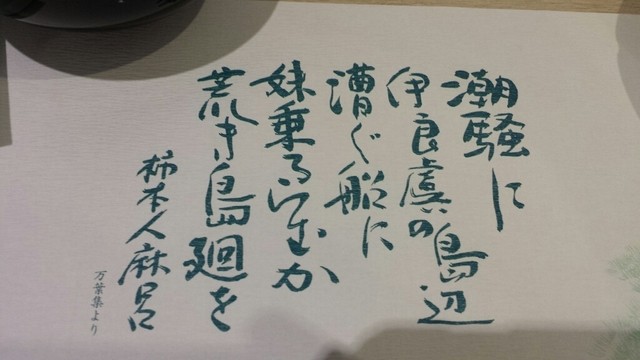 潮騒に
伊良虞の島辺
漕ぐ船に
妹乗るらむか
荒き島廻を
柿本人麻呂
万葉集より